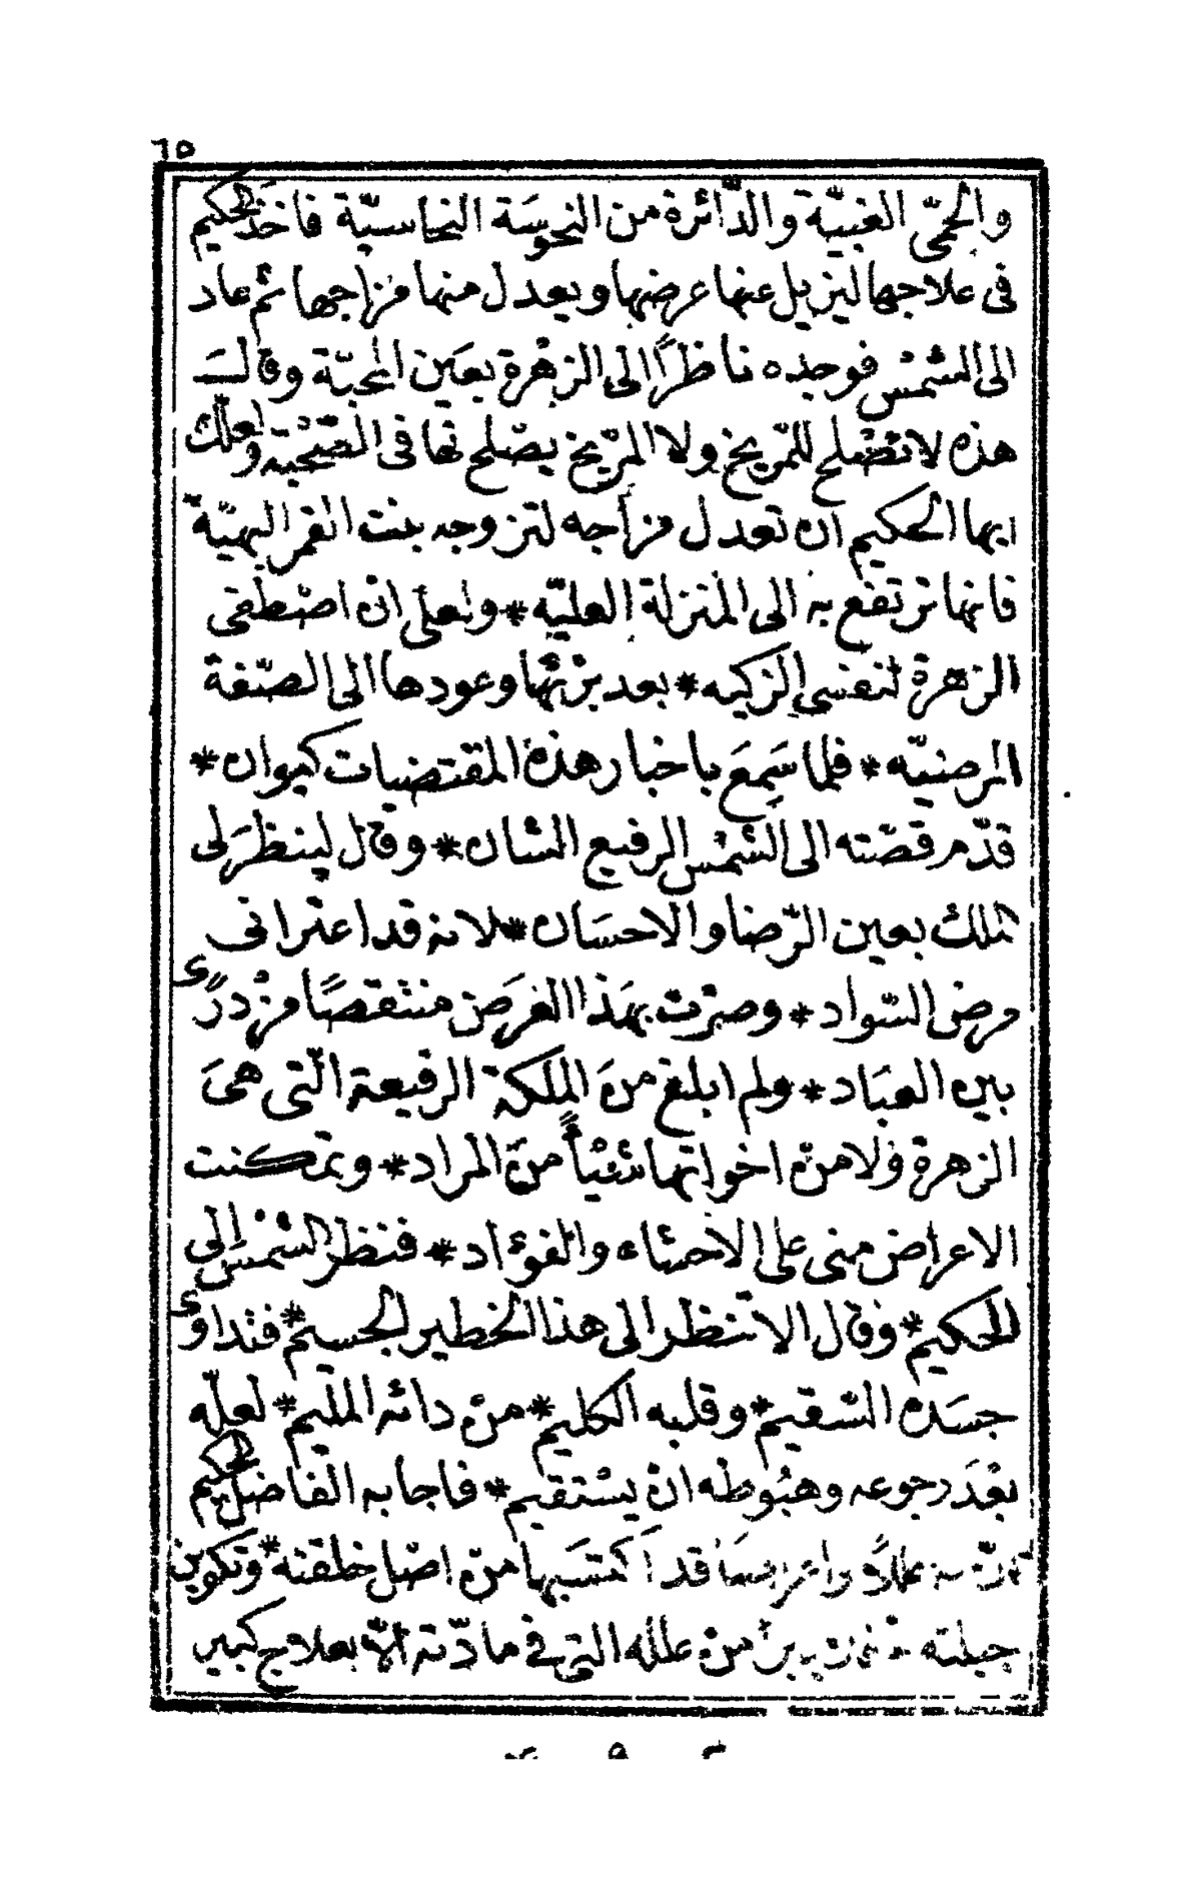 ٦٥
والحمّى الغبيّة والدّائرة من النحوسَة النحاسيّة فاخذ الحكيم
فى علاجها ليزيل عنها عرضها ويعدل منها مزاجها ثم عاد
الى الشمس فوجده ناظرًا الى الزهرة بعَين المحبّة وقالَ
هذه لا تصْلح للمّريخ ولا المّريخ يصْلح لها فى الصّحبة ولعلّك
ايها الحكيم ان تعدل مزاجه لتزوجه بنت القمر البهيّة
فانها ترتفع به الى المنزلة العليّه * ولعلى انْ اصْطفى
الزهرة لنفسى الزكيه * بعد برئها وعودها الى الصّفة
المرضيّه * فلما سَمِعَ باخبار هذه المقتضيات كيوان *
قدّم قصّته الى الشمْس الرفيع الشان * وقال لينظرَ لى
الملك بعين الرّضا والاحسَان * لانه قد اعترانى
مرض السّواد * وصرْت بهَذا الغرَض منتقصًا منْ ذرّى
بين العبَاد * ولم ابلغ منَ الملكة الرفيعة الّتى هىَ
الزهرة ولا منْ اخواتها شيْئاً منَ المراد * وتمكنت
الاعراض منى على الاحشاء والفؤاد * فنظر الشمْس الى
الحكيم * وقال الا تنظر الى هذا الخطير الجسيم * فنداوى
جسَده السّقيم * وقلبه الكليم * منْ دائه المليم * لعلّه
بعْدَ رجوعه وهبُوطه انْ يسْتقيم * فاجابه الفاضل الحكيم
انّ به عللاً واعراضَا قد اكتسَبها منْ اصْل خلقته * وتكوين
جبلته * فمن يبرأ منْ علله التى فى مادّته الّا بعلاج كبير